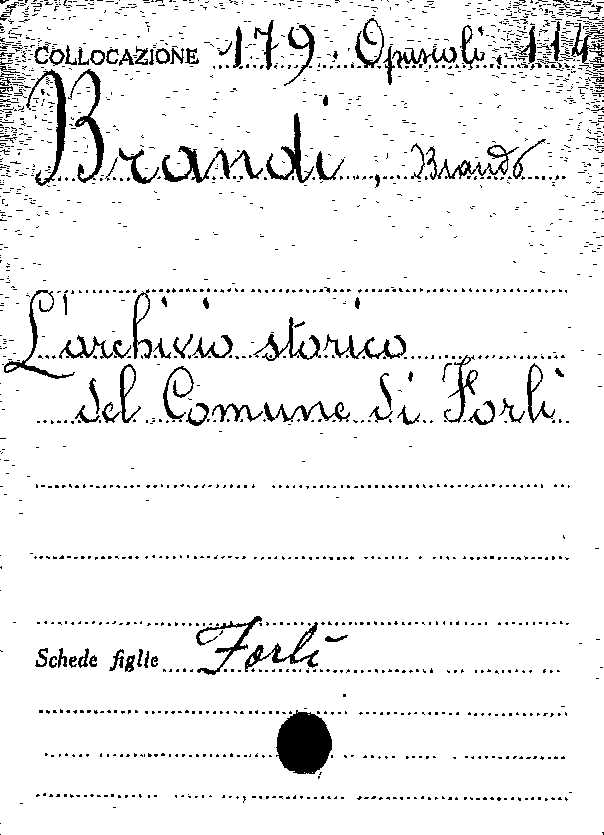 COLLOCAZIONE 179. Opuscoli. 114
Brandi, Brando
L'archivio storico
del Comune di Forlì
Schede figlie Forlì